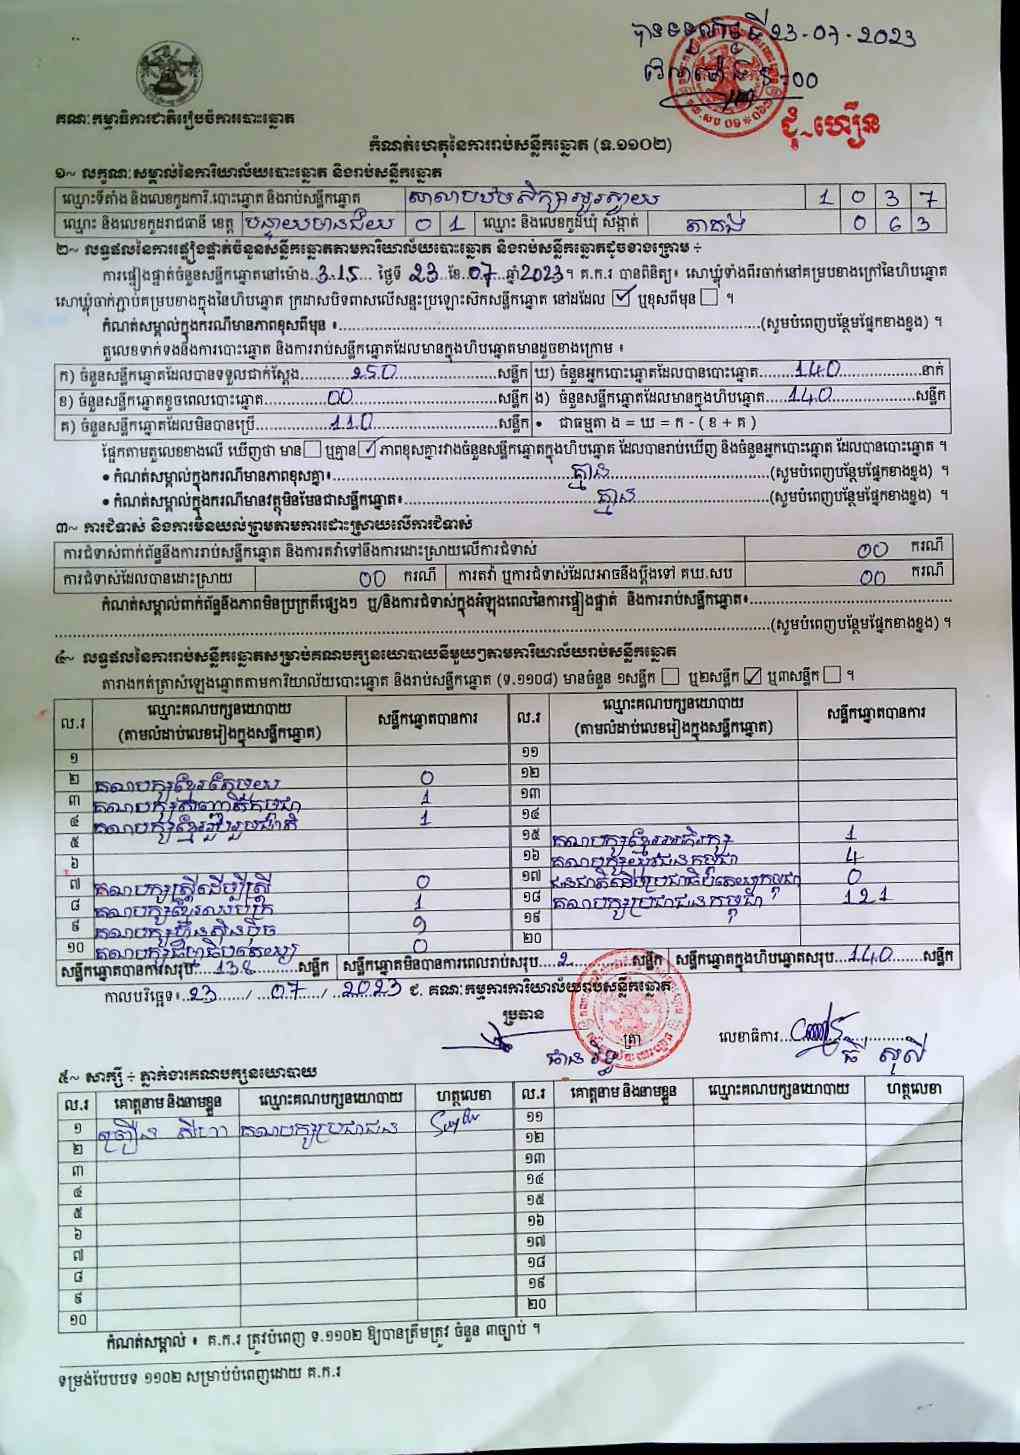 បានទទួលថ្ងៃទី 23-07-2023
គណៈកម្មាធិការជាតិរៀបចំការបោះឆ្នោត
ជុំ ហឿន
កំណត់ហេតុនៃការរាប់សន្លឹកឆ្នោត (ទ.១១០២)
១~ លក្ខណៈសម្គាល់នៃការិយាល័យបោះឆ្នោត និងរាប់សន្លឹកឆ្នោត
ឈ្មោះទីតាំង និងលេខកូដការិ.បោះឆ្នោត និងរាប់សន្លឹកឆ្នោត សាលាបឋមសិក្សាអូរស្វាយ 1 0 3 7
ឈ្មោះ និងលេខកូដរាជធានី ខេត្ត បន្ទាយមានជ័យ 0 1 ឈ្មោះ និងលេខកូដឃុំ សង្កាត់ តាគង់ 0 6 3
២~ លទ្ធផលនៃការផ្ទៀងផ្ទាត់ចំនួនសន្លឹកឆ្នោតតាមការិយាល័យបោះឆ្នោត និងរាប់សន្លឹកឆ្នោតដូចខាងក្រោម ÷
ការផ្ទៀងផ្ទាត់ចំនួនសន្លឹកឆ្នោតនៅម៉ោង.3:15... ថ្ងៃទី 23.ខែ.07.ឆ្នាំ2023។ គ.ក.រ បានពិនិត្យ៖ សោឃ្លុំទាំងពីរចាក់នៅគម្របខាងក្រៅនៃហិបឆ្នោត
សោឃ្លុំចាក់ភ្ជាប់គម្របខាងក្នុងនៃហិបឆ្នោត ក្រដាសបិទពាសលើសន្ទះប្រឡោះស៊កសន្លឹកឆ្នោត នៅដដែល ☑ ឬខុសពីមុន ☐ ។
កំណត់សម្គាល់ក្នុងករណីមានភាពខុសពីមុន ៖......(សូមបំពេញបន្ថែមផ្នែកខាងខ្នង) ។
តួលេខទាក់ទងនឹងការបោះឆ្នោត និងការរាប់សន្លឹកឆ្នោតដែលមានក្នុងហិបឆ្នោតមានដូចខាងក្រោម ៖
ក) ចំនួនសន្លឹកឆ្នោតដែលបានទទួលជាក់ស្តែង......250......សន្លឹក ឃ) ចំនួនអ្នកបោះឆ្នោតដែលបានបោះឆ្នោត......140......នាក់
ខ) ចំនួនសន្លឹកឆ្នោតខូចពេលបោះឆ្នោត......00......សន្លឹក ង) ចំនួនសន្លឹកឆ្នោតដែលមានក្នុងហិបឆ្នោត......140......សន្លឹក
គ) ចំនួនសន្លឹកឆ្នោតដែលមិនបានប្រើ......110......សន្លឹក • ជាធម្មតា ង = ឃ = ក - ( ខ + គ )
ផ្អែកតាមតួលេខខាងលើ ឃើញថា មាន ☐ ឬគ្មាន ☑ ភាពខុសគ្នារវាងចំនួនសន្លឹកឆ្នោតក្នុងហិបឆ្នោត ដែលបានរាប់ឃើញ និងចំនួនអ្នកបោះឆ្នោត ដែលបានបោះឆ្នោត ។
• កំណត់សម្គាល់ក្នុងករណីមានភាពខុសគ្នា៖......គ្មាន......(សូមបំពេញបន្ថែមផ្នែកខាងខ្នង) ។
• កំណត់សម្គាល់ក្នុងករណីមានវត្ថុមិនមែនជាសន្លឹកឆ្នោត៖......គ្មាន......(សូមបំពេញបន្ថែមផ្នែកខាងខ្នង) ។
៣~ ការជំទាស់ និងការមិនយល់ព្រមតាមការដោះស្រាយលើការជំទាស់
ការជំទាស់ពាក់ព័ន្ធនឹងការរាប់សន្លឹកឆ្នោត និងការតវ៉ាទៅនឹងការដោះស្រាយលើការជំទាស់ 00 ករណី
ការជំទាស់ដែលបានដោះស្រាយ 00 ករណី ការតវ៉ា ឬការជំទាស់ដែលអាចនឹងប្តឹងទៅ គឃ.សប 00 ករណី
កំណត់សម្គាល់ពាក់ព័ន្ធនឹងភាពមិនប្រក្រតីផ្សេងៗ ឬ/និងការជំទាស់ក្នុងអំឡុងពេលនៃការផ្ទៀងផ្ទាត់ និងការរាប់សន្លឹកឆ្នោត៖......
......(សូមបំពេញបន្ថែមផ្នែកខាងខ្នង) ។
៤~ លទ្ធផលនៃការរាប់សន្លឹកឆ្នោតសម្រាប់គណបក្សនយោបាយនីមួយៗតាមការិយាល័យរាប់សន្លឹកឆ្នោត
តារាងកត់ត្រាសំឡេងឆ្នោតតាមការិយាល័យបោះឆ្នោត និងរាប់សន្លឹកឆ្នោត (ទ.១១០៨) មានចំនួន ១សន្លឹក ☐ ឬ២សន្លឹក ☑ ឬ៣សន្លឹក ☐ ។
ល.រ ឈ្មោះគណបក្សនយោបាយ (តាមលំដាប់លេខរៀងក្នុងសន្លឹកឆ្នោត) សន្លឹកឆ្នោតបានការ ល.រ ឈ្មោះគណបក្សនយោបាយ (តាមលំដាប់លេខរៀងក្នុងសន្លឹកឆ្នោត) សន្លឹកឆ្នោតបានការ
១ ១១
២ គណបក្សខ្មែរតែមួយ 0 ១២
៣ គណបក្ស 1 ១៣
៤ គណបក្សខ្មែររួបរួមជាតិ 1 ១៤
៥ ១៥ គណបក្សខ្មែរអភិរក្ស 1
៦ ១៦ គណបក្សយុវជនកម្ពុជា 4
៧ គណបក្សស្ត្រីដើម្បីស្ត្រី 0 ១៧ ជនជាតិដើមប្រជាធិបតេយ្យកម្ពុជា 0
៨ គណបក្សខ្មែរឈប់ក្រ 1 ១៨ គណបក្សប្រជាជនកម្ពុជា 121
៩ គណបក្សហ៊្វុនស៊ិនប៉ិច 9 ១៩
១០ គណបក្សធិបតេយ្យ 0 ២០
សន្លឹកឆ្នោតបានការសរុប...138......សន្លឹក សន្លឹកឆ្នោតមិនបានការពេលរាប់សរុប...2......សន្លឹក សន្លឹកឆ្នោតក្នុងហិបឆ្នោតសរុប...140......សន្លឹក
កាលបរិច្ឆេទ៖..23....../...07....../...2023 ជ. គណៈកម្មការការិយាល័យរាប់សន្លឹកឆ្នោត
ប្រធាន
ត្រា
លេខាធិការ......
ធី សុលី
៥~ សាក្សី ÷ ភ្នាក់ងារគណបក្សនយោបាយ
ល.រ គោត្តនាម និងនាមខ្លួន ឈ្មោះគណបក្សនយោបាយ ហត្ថលេខា ល.រ គោត្តនាម និងនាមខ្លួន ឈ្មោះគណបក្សនយោបាយ ហត្ថលេខា
១ គណបក្សប្រជាជន ១១
២ ១២
៣ ១៣
៤ ១៤
៥ ១៥
៦ ១៦
៧ ១៧
៨ ១៨
៩ ១៩
១០ ២០
កំណត់សម្គាល់ ៖ គ.ក.រ ត្រូវបំពេញ ទ.១១០២ ឱ្យបានត្រឹមត្រូវ ចំនួន ៣ច្បាប់ ។
ទម្រង់បែបបទ ១១០២ សម្រាប់បំពេញដោយ គ.ក.រ